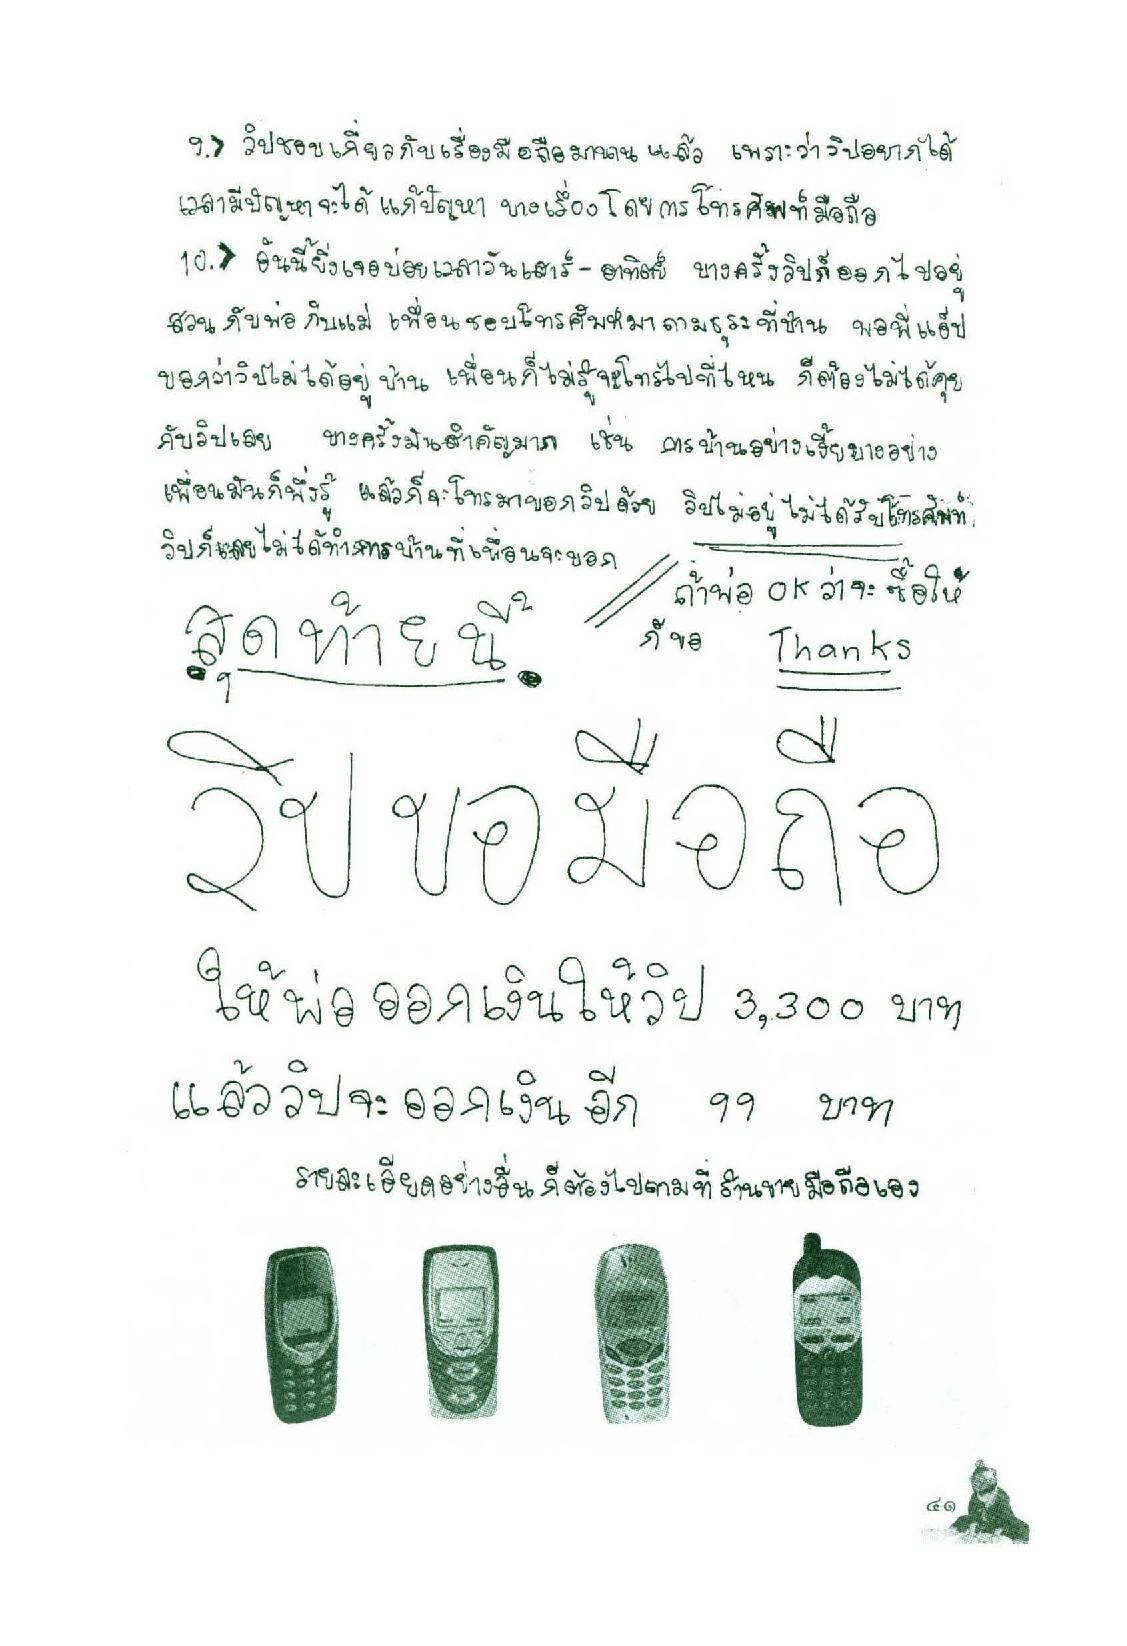 9.> วิปชอบเกี่ยวกับเรื่องมือถือมานานแล้ว เพราะว่าวิปอยากได้
เวลามีปัญหาจะได้ แก้ปัญหา บางเรื่องโดยการโทรศัพท์มือถือ
10.> อันนี้ยิ่งเจอบ่อยเวลาวันเสาร์-อาทิตย์ บางครั้งวิปก็ออกไปอยู่
สวนกับพ่อกับแม่ เพื่อนชอบโทรศัพท์มาถามธุระที่บ้าน พอพี่แอ็ป
บอกว่าวิปไม่ได้อยู่บ้าน เพื่อนก็ไม่รู้จะโทรไปที่ไหน ก็ต้องไม่ได้คุย
กับวิปเลย บางครั้งมันสำคัญมาก เช่น การบ้านอย่างเงี้ยบางอย่าง
เพื่อนมันก็พึ่งรู้ แล้วก็จะโทรมาบอกวิปด้วย วิปไม่อยู่ ไม่ได้รับโทรศัพท์
วิปก็เลยไม่ได้ทำการบ้านที่เพื่อนจะบอก
ถ้าพ่อ OK ว่าจะซื้อให้
ก็ขอ Thanks
สุดท้ายนี้
วิปขอมือถือ
ให้พ่อออกเงินให้วิป 3,300 บาท
แล้ววิปจะออกเงินอีก 99 บาท
รายละเอียดอย่างอื่น ก็ต้องไปถามที่ร้านขายมือถือเอง
๔๑